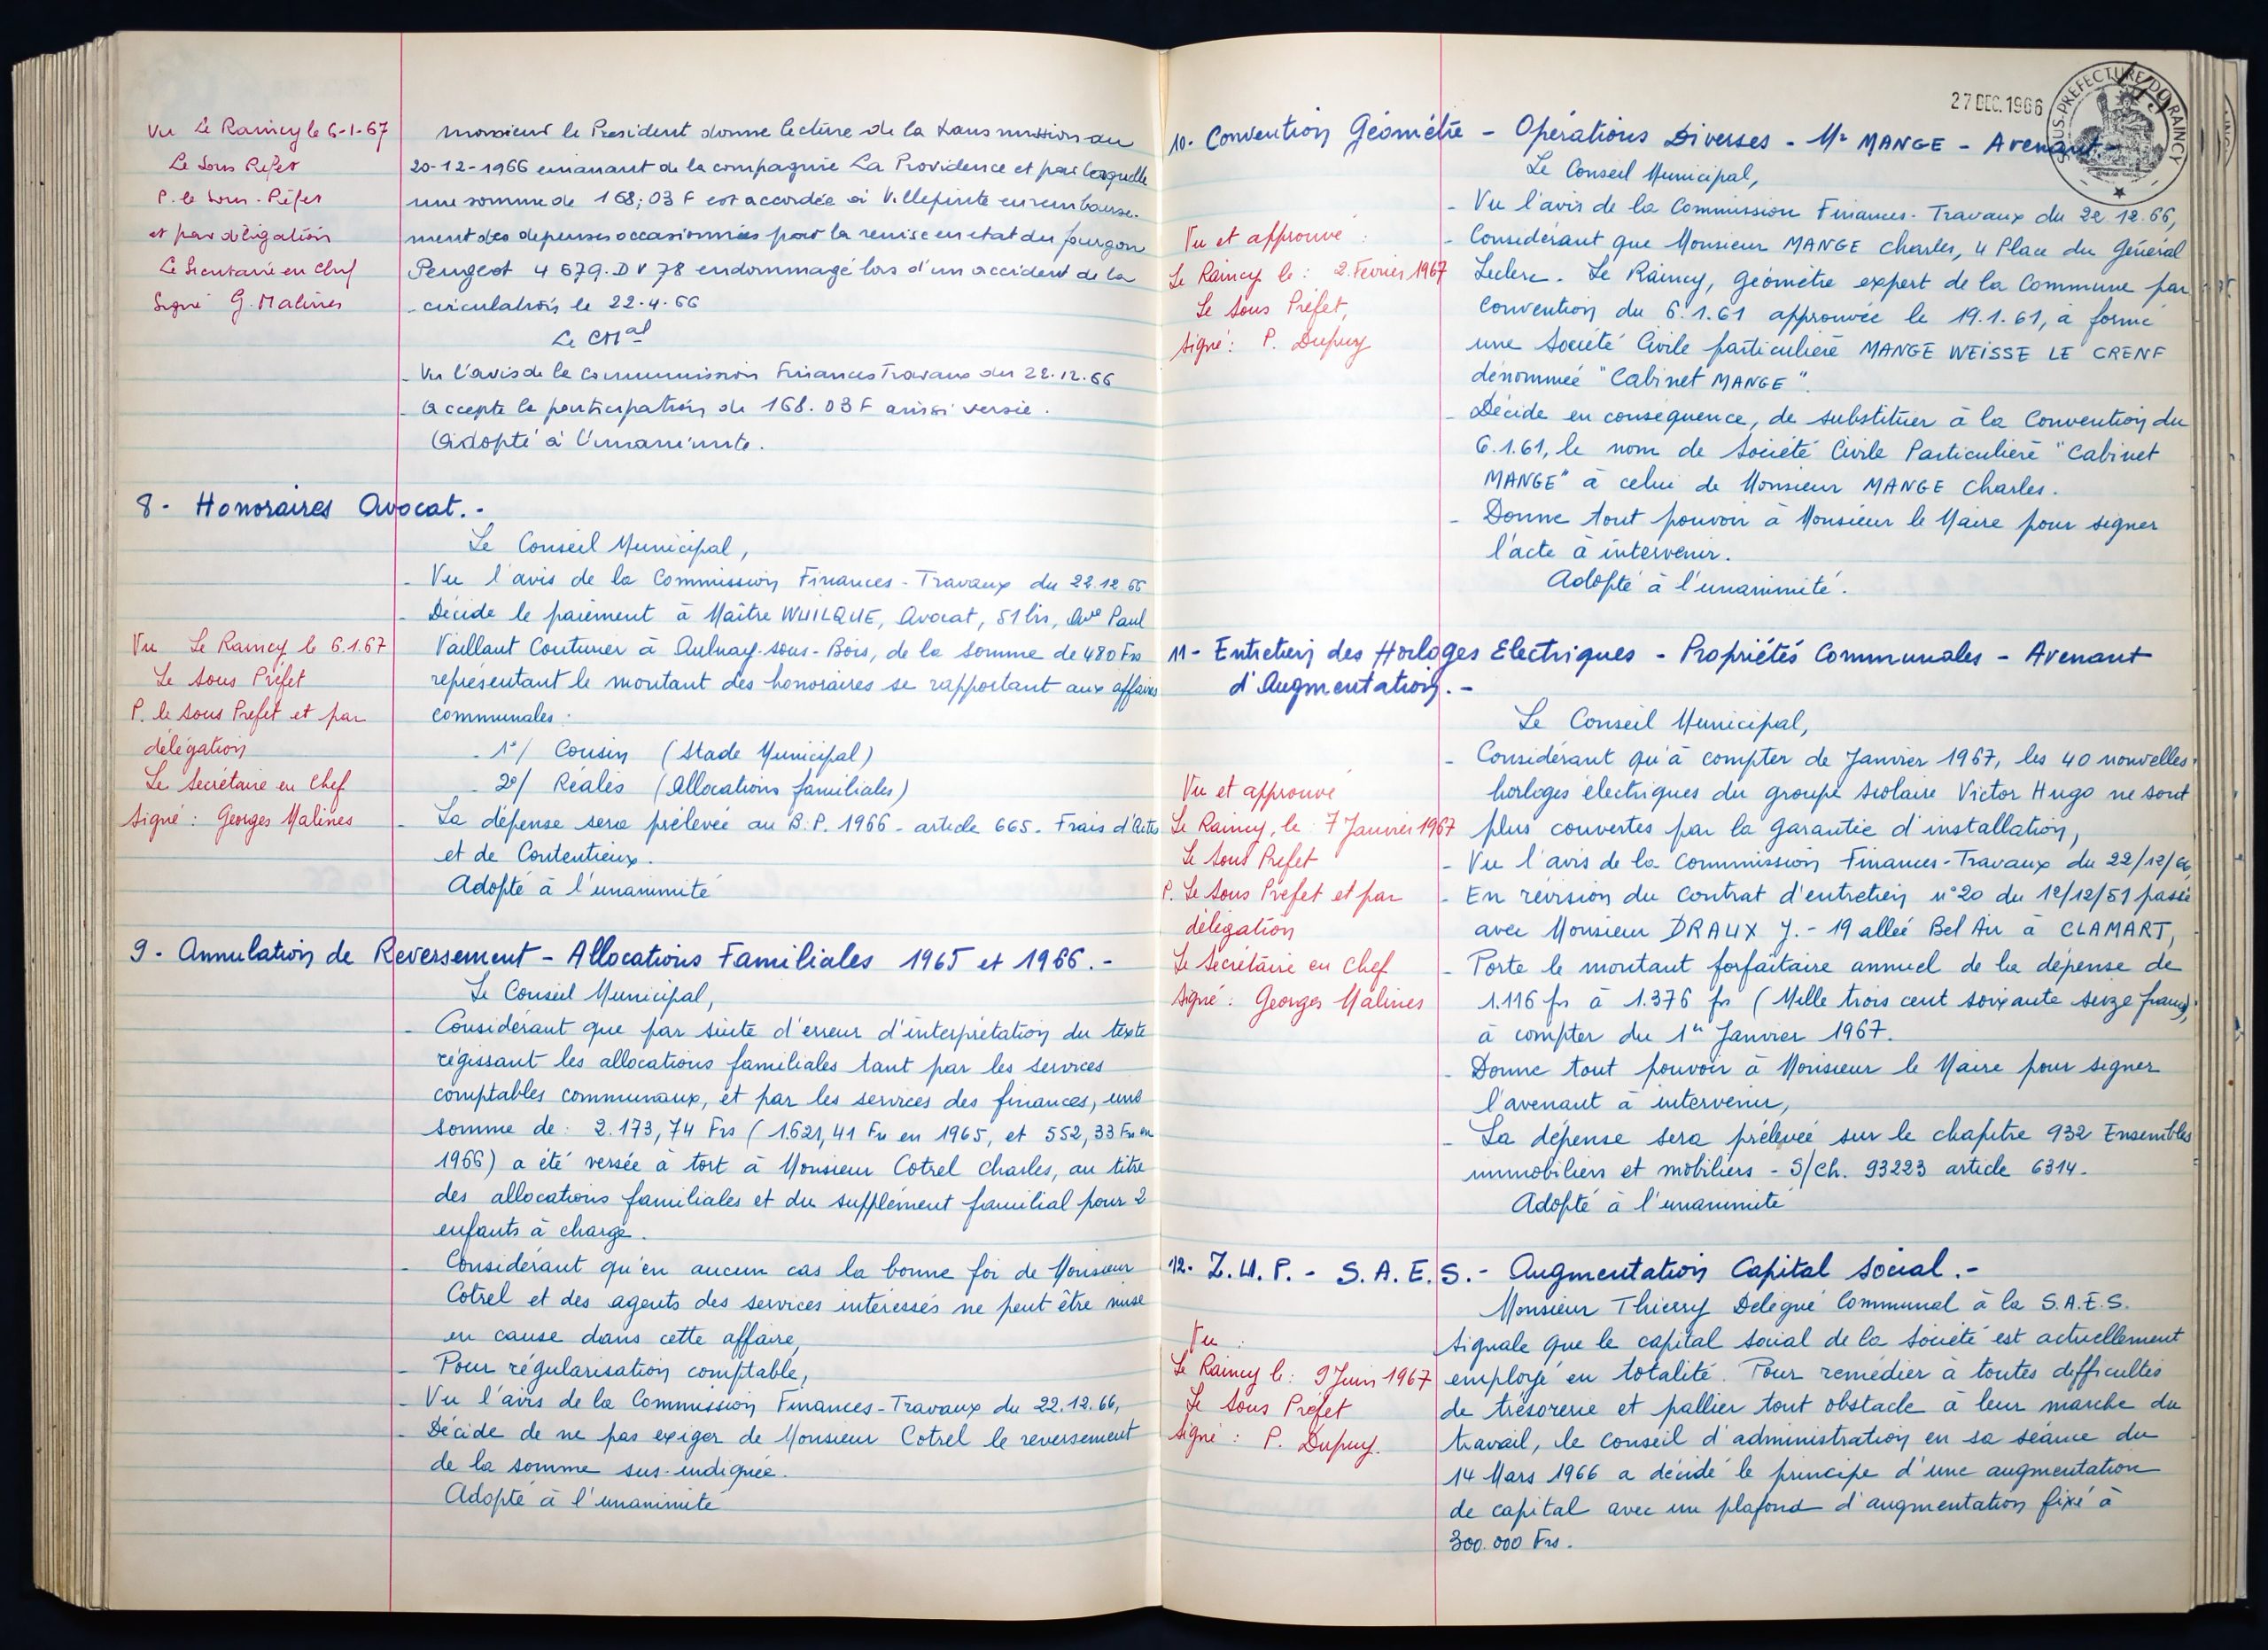 Vu Le Raincy le 6-1-67
Le Sous Prefet
P. le Sous-Préfet
et par délégation
Le Secretaire en chef
Signé G. Malines
Monsieur le President donne lecture de la transmission du
20-12-1966 emanant de la compagnie La Providence et par laquelle
une somme de 168,03 F est accordée à Villepinte en rembourse-
ment des depenses occasionnées pour la remise en etat du fourgon
Peugeot 4679.DV78 endommagé lors d'un accident de la
circulation le 22.4.66
Le CMal
- Vu l'avis de la Commission Finances Travaux du 22.12.66
- Accepte la participation de 168.03 F ainsi versée.
Adopté à l'unanimité.
8- Honoraires Avocat.-
Le Conseil Municipal,
- Vu l'avis de la Commission Finances-Travaux du 22.12.66
- Décide le paiement à Maître WUILQUE, Avocat, 51 bis, Ave Paul
Vaillant Couturier à Aulnay-sous-Bois, de la somme de 480 Frs
représentant le montant des honoraires se rapportant aux affaires
communales:
- 1°/ Cousin (Stade Municipal)
- 2°/ Réalés (Allocations familiales)
- La dépense sera prélevée au B.P. 1966 - article 665 - Frais d'Actes
et de Contentieux.
Adopté à l'unanimité
Vu Le Raincy le 6.1.67
Le Sous Préfet
P. le Sous Prefet et par
délégation
Le Secrétaire en Chef
Signé: Georges Malines
9- Annulation de Reversement - Allocations Familiales 1965 et 1966.-
Le Conseil Municipal,
- Considérant que par suite d'erreur d'interprétation du texte
régissant les allocations familiales tant par les services
comptables communaux, et par les services des finances, une
somme de: 2.173,74 Frs (1.621,41 Frs en 1965, et 552,33 Frs en
1966) a été versée à tort à Monsieur Cotrel Charles, au titre
des allocations familiales et du supplément familial pour 2
enfants à charge.
- Considérant qu'en aucun cas la bonne foi de Monsieur
Cotrel et des agents des services intéressés ne peut être mise
en cause dans cette affaire,
- Pour régularisation comptable,
- Vu l'avis de la Commission Finances-Travaux du 22.12.66,
- Décide de ne pas exiger de Monsieur Cotrel le reversement
de la somme sus-indiquée.
Adopté à l'unanimité
27 DEC. 1966
SOUS-PREFECTURE DU RAINCY
10- Convention Géomètre - Opérations Diverses - Mr MANGE - Avenant.-
Le Conseil Municipal,
- Vu l'avis de la Commission Finances-Travaux du 22.12.66,
- Considérant que Monsieur MANGE Charles, 4 Place du Général
Leclerc - Le Raincy, géomètre expert de la Commune par
Convention du 6.1.61 approuvée le 19.1.61, a formé
une Société Civile particulière MANGE WEISSE LE CRENF
dénommée "Cabinet MANGE".
- Décide en conséquence, de substituer à la Convention du
6.1.61, le nom de Société Civile Particulière "Cabinet
MANGE" à celui de Monsieur MANGE Charles.
- Donne tout pouvoir à Monsieur le Maire pour signer
l'acte à intervenir.
Adopté à l'unanimité.
Vu et approuvé:
Le Raincy le: 2. Fevrier 1967
Le Sous Préfet,
Signé: P. Dupuy
11- Entretien des Horloges Electriques - Propriétés Communales - Avenant
d'Augmentation.-
Le Conseil Municipal,
- Considérant qu'à compter de Janvier 1967, les 40 nouvelles
horloges électriques du groupe scolaire Victor Hugo ne sont
plus couvertes par la garantie d'installation,
- Vu l'avis de la Commission Finances-Travaux du 22/12/66
- En révision du Contrat d'entretien n°20 du 12/12/51 passé
avec Monsieur DRAUX J. - 19 allée Bel Air à CLAMART,
- Porte le montant forfaitaire annuel de la dépense de
1.116 frs à 1.376 frs (Mille trois cent soixante seize francs),
à compter du 1er Janvier 1967.
- Donne tout pouvoir à Monsieur le Maire pour signer
l'avenant à intervenir,
- La dépense sera prélevée sur le chapitre 932 Ensembles
immobiliers et mobiliers - S/Ch. 93223 article 6314.
Adopté à l'unanimité
Vu et approuvé
Le Raincy, le 7 Janvier 1967
Le Sous Prefet
P. Le Sous Prefet et par
délégation
Le Secrétaire en Chef
Signé: Georges Malines
12- Z.U.P. - S.A.E.S.- Augmentation Capital Social.-
Monsieur Thierry Délégué Communal à la S.A.E.S.
signale que le capital social de la Société est actuellement
employé en totalité. Pour remédier à toutes difficultés
de trésorerie et pallier tout obstacle à leur marche du
travail, le conseil d'administration en sa séance du
14 Mars 1966 a décidé le principe d'une augmentation
de capital avec un plafond d'augmentation fixé à
300.000 Frs.
Vu:
Le Raincy le: 9 Juin 1967
Le Sous Préfet
Signé: P. Dupuy.